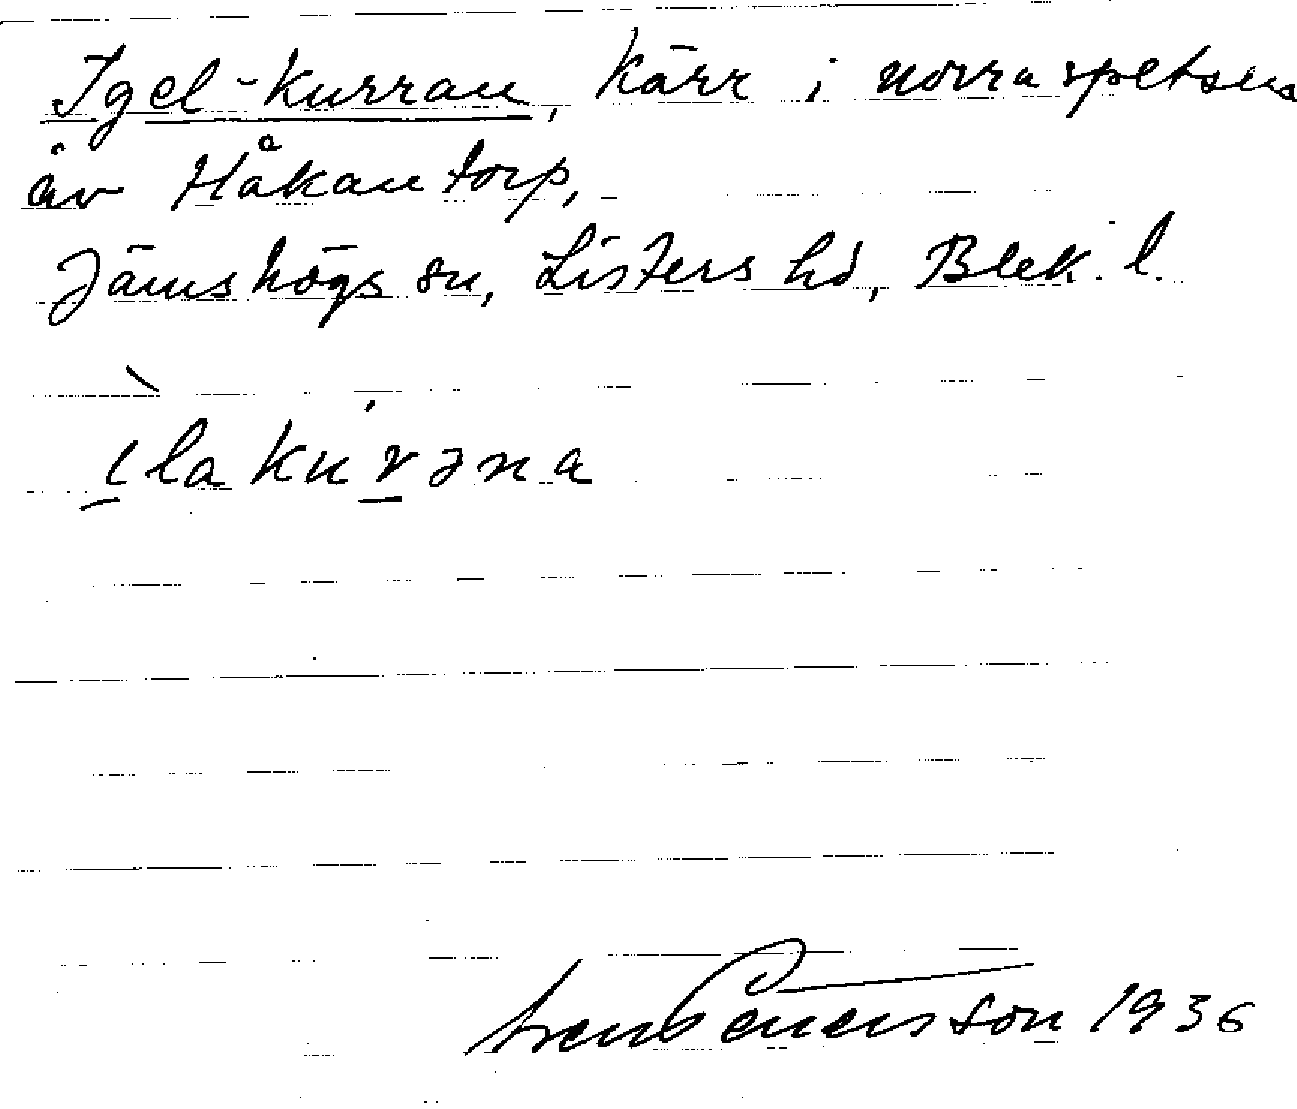 Igel-kurran, Kärr i norra spetsen
av Håkantorp,
Jämshögs sn, Listers hd, Blek. l.
ılakurəna
1936